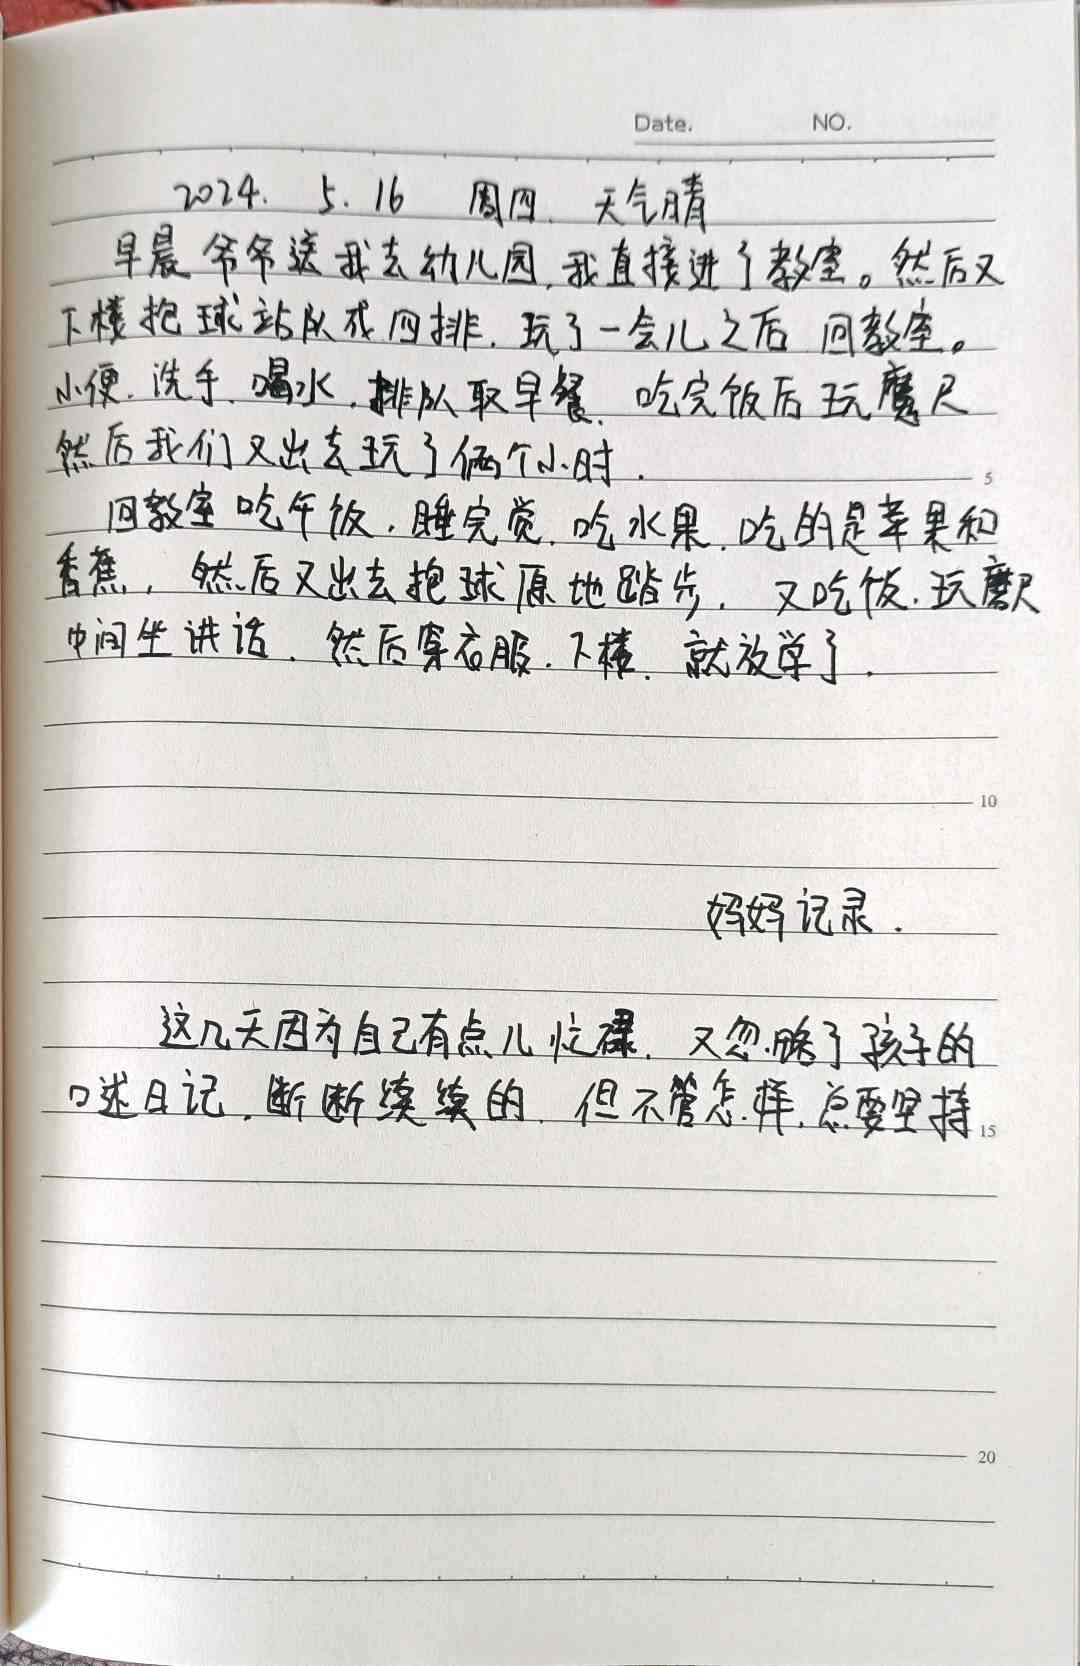 Date. NO.
2024. 5. 16 周四. 天气晴
早晨爷爷送我去幼儿园,我直接进了教室。然后又
下楼抱球站队成四排.玩了一会儿之后 回教室。
小便.洗手.喝水.排队取早餐.吃完饭后玩魔尺
然后我们又出去玩了俩个小时.
5
回教室吃午饭.睡完觉.吃水果.吃的是苹果和
香蕉,然后又出去抱球原地踏步.又吃饭.玩魔尺
中间坐讲话.然后穿衣服.下楼.就放学了.
10
妈妈记录.
这几天因为自己有点儿忙碌.又忽略了孩子的
口述日记,断断续续的.但不管怎样,总要坚持
15
20